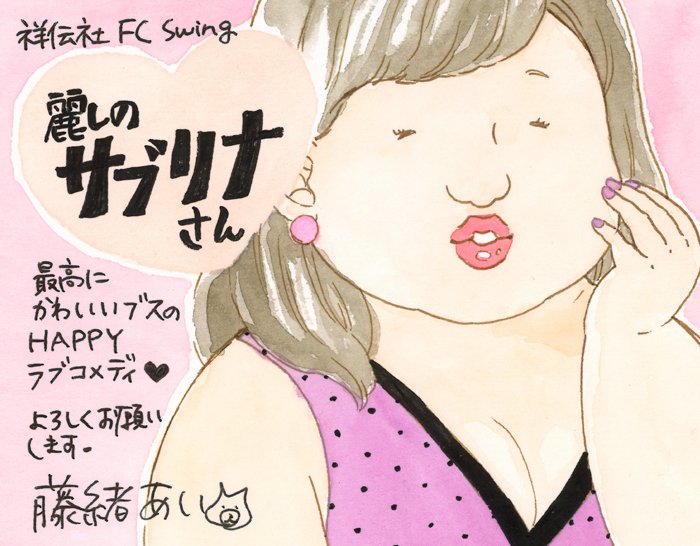 祥伝社 FC Swing
麗しの
サブリナ
さん
最高に
かわいいブスの
HAPPY
ラブコメディ♥
よろしくお願い
します。
藤緒あい